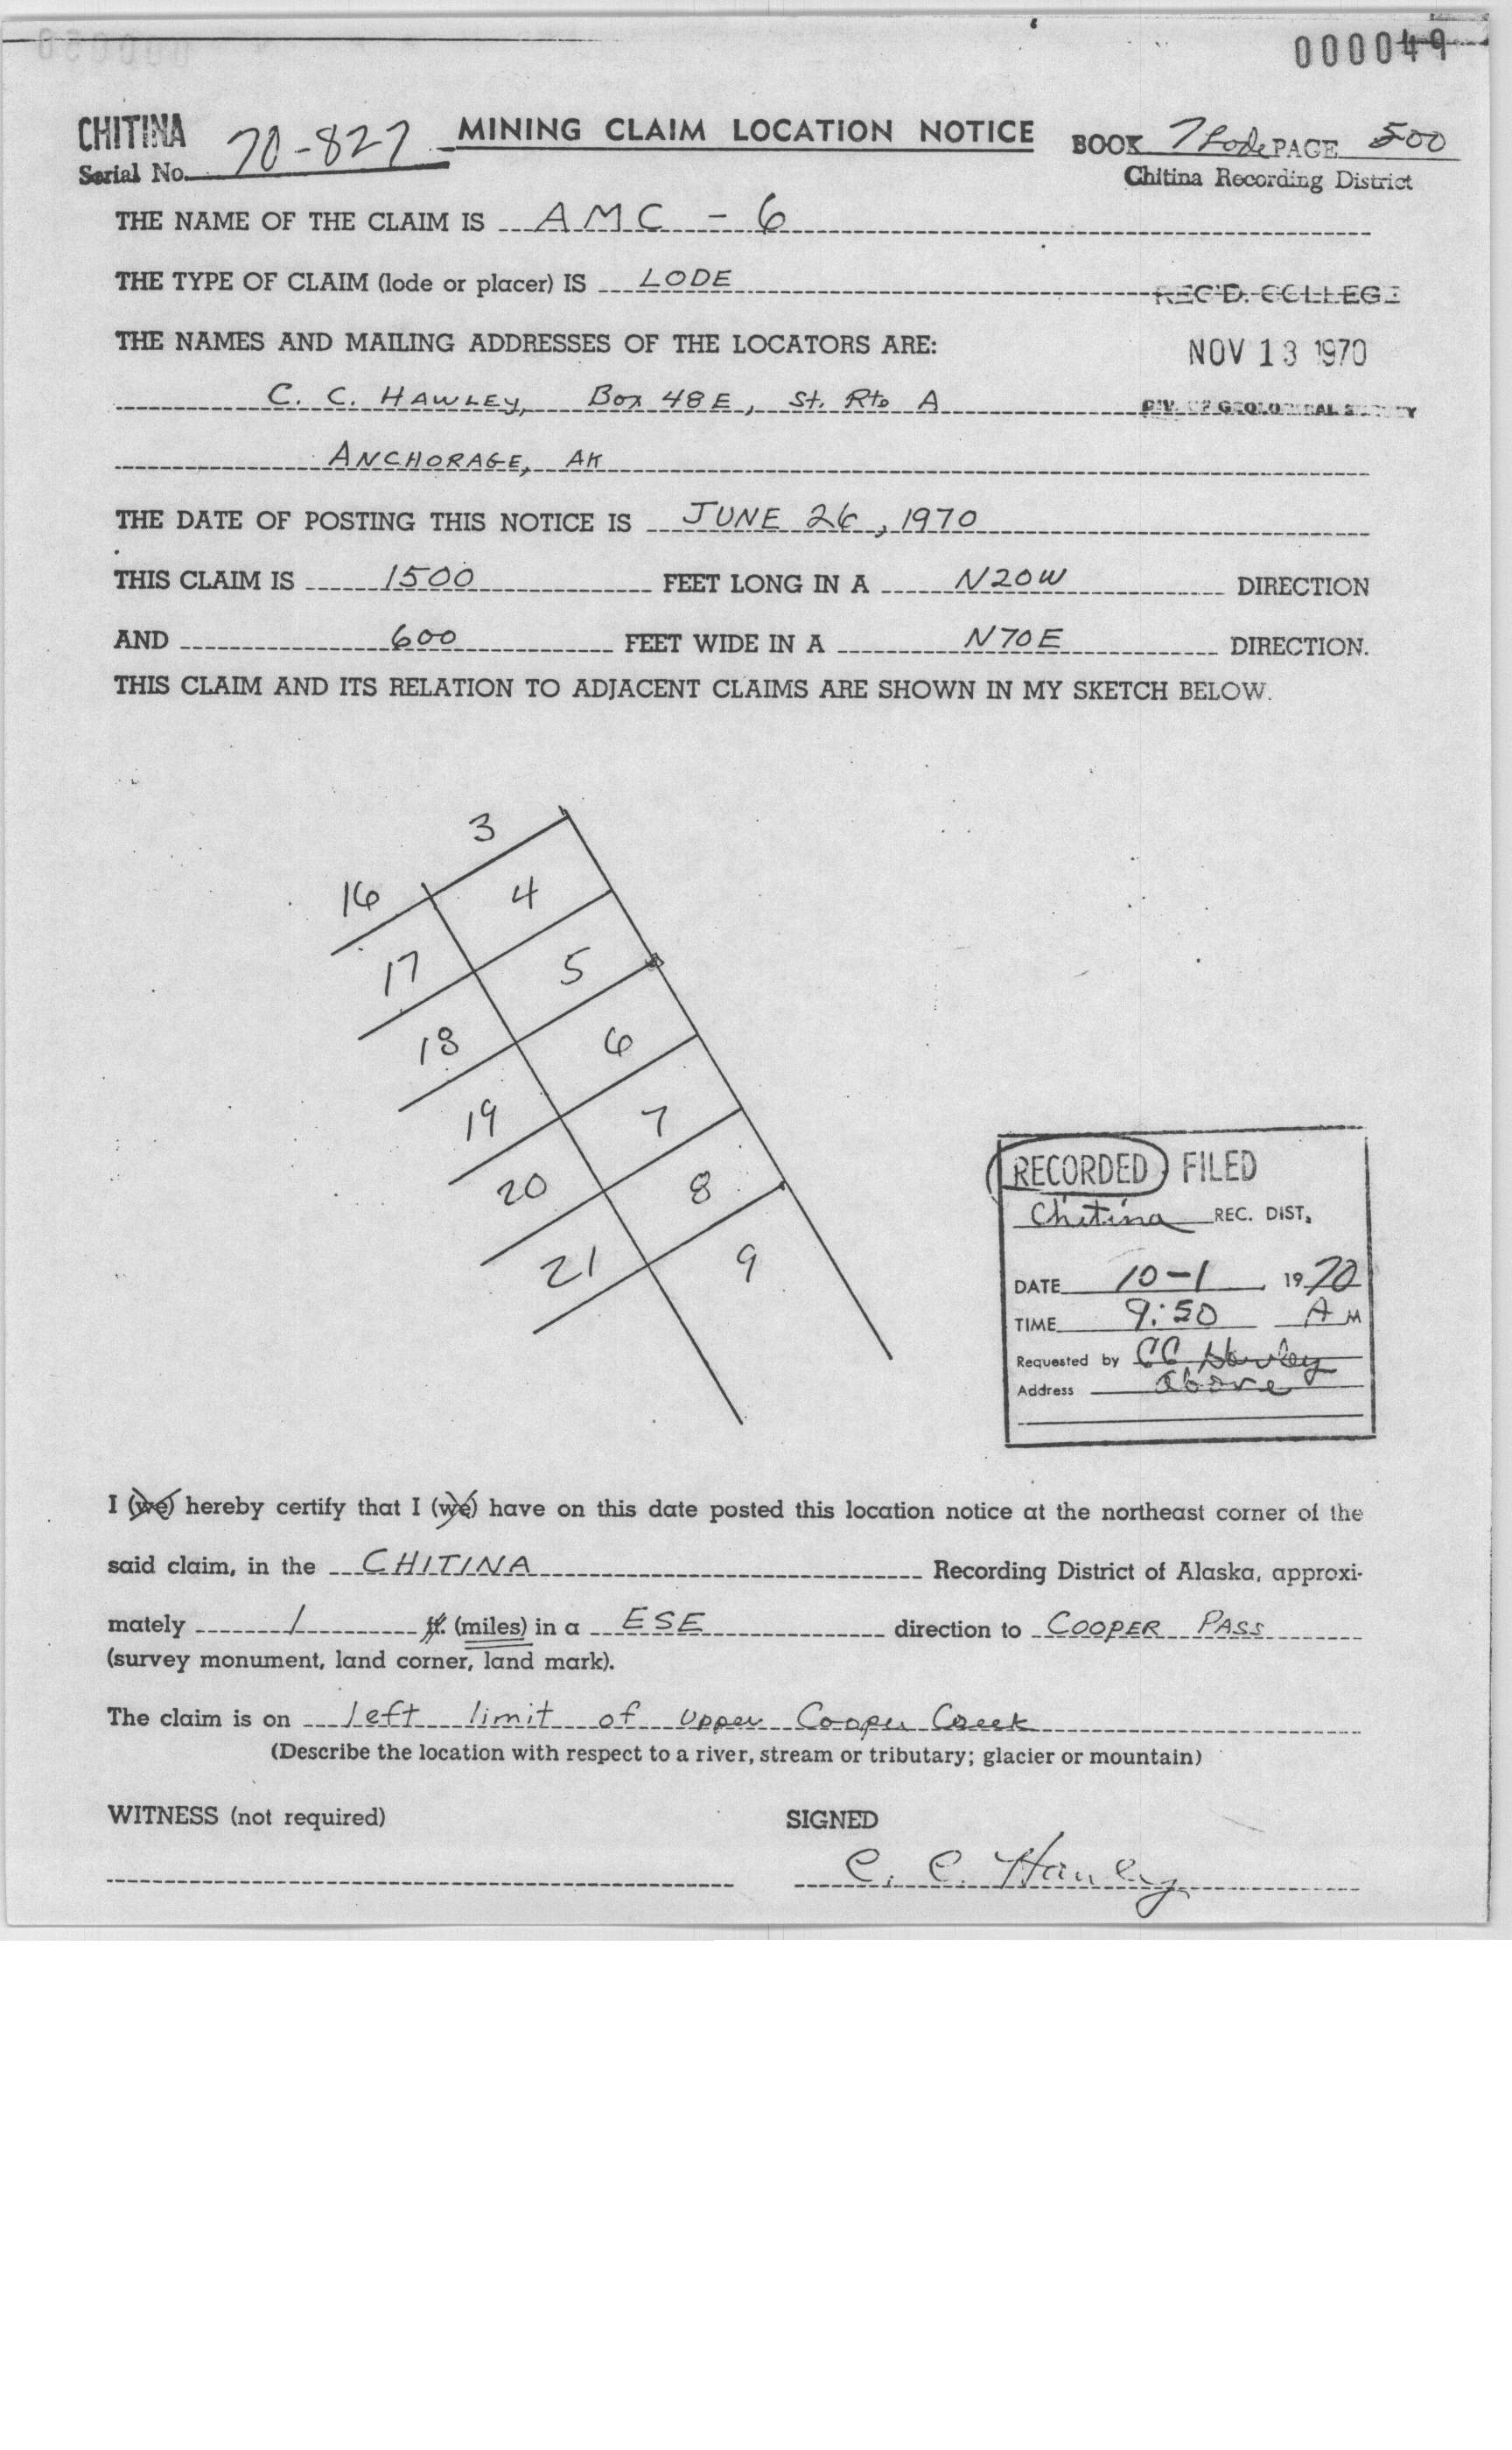 000049
CHITINA
Serial No. 70-827 MINING CLAIM LOCATION NOTICE BOOK 7 Lode PAGE 500
Chitina Recording District
THE NAME OF THE CLAIM IS AMC - 6
THE TYPE OF CLAIM (lode or placer) IS LODE
REC'D. COLLEGE
THE NAMES AND MAILING ADDRESSES OF THE LOCATORS ARE:
NOV 13 1970
C. C. HAWLEY, Box 48E, St. Rte A
DIV. OF GEOLOGICAL SURVEY
ANCHORAGE, AK
THE DATE OF POSTING THIS NOTICE IS JUNE 26, 1970
THIS CLAIM IS 1500 FEET LONG IN A N20W DIRECTION
AND 600 FEET WIDE IN A N70E DIRECTION.
THIS CLAIM AND ITS RELATION TO ADJACENT CLAIMS ARE SHOWN IN MY SKETCH BELOW.
3
16 4
17 5
18 6
19 7
20 8
21 9
RECORDED FILED
Chitina REC. DIST.
DATE 10-1 1970
TIME 9:50 A M
Requested by CC Hawley
Address above
I (we) hereby certify that I (we) have on this date posted this location notice at the northeast corner of the
said claim, in the CHITINA Recording District of Alaska, approxi-
mately 1 ft. (miles) in a ESE direction to COOPER PASS
(survey monument, land corner, land mark).
The claim is on left limit of upper Cooper Creek
(Describe the location with respect to a river, stream or tributary; glacier or mountain)
WITNESS (not required) SIGNED
C. C. Hawley